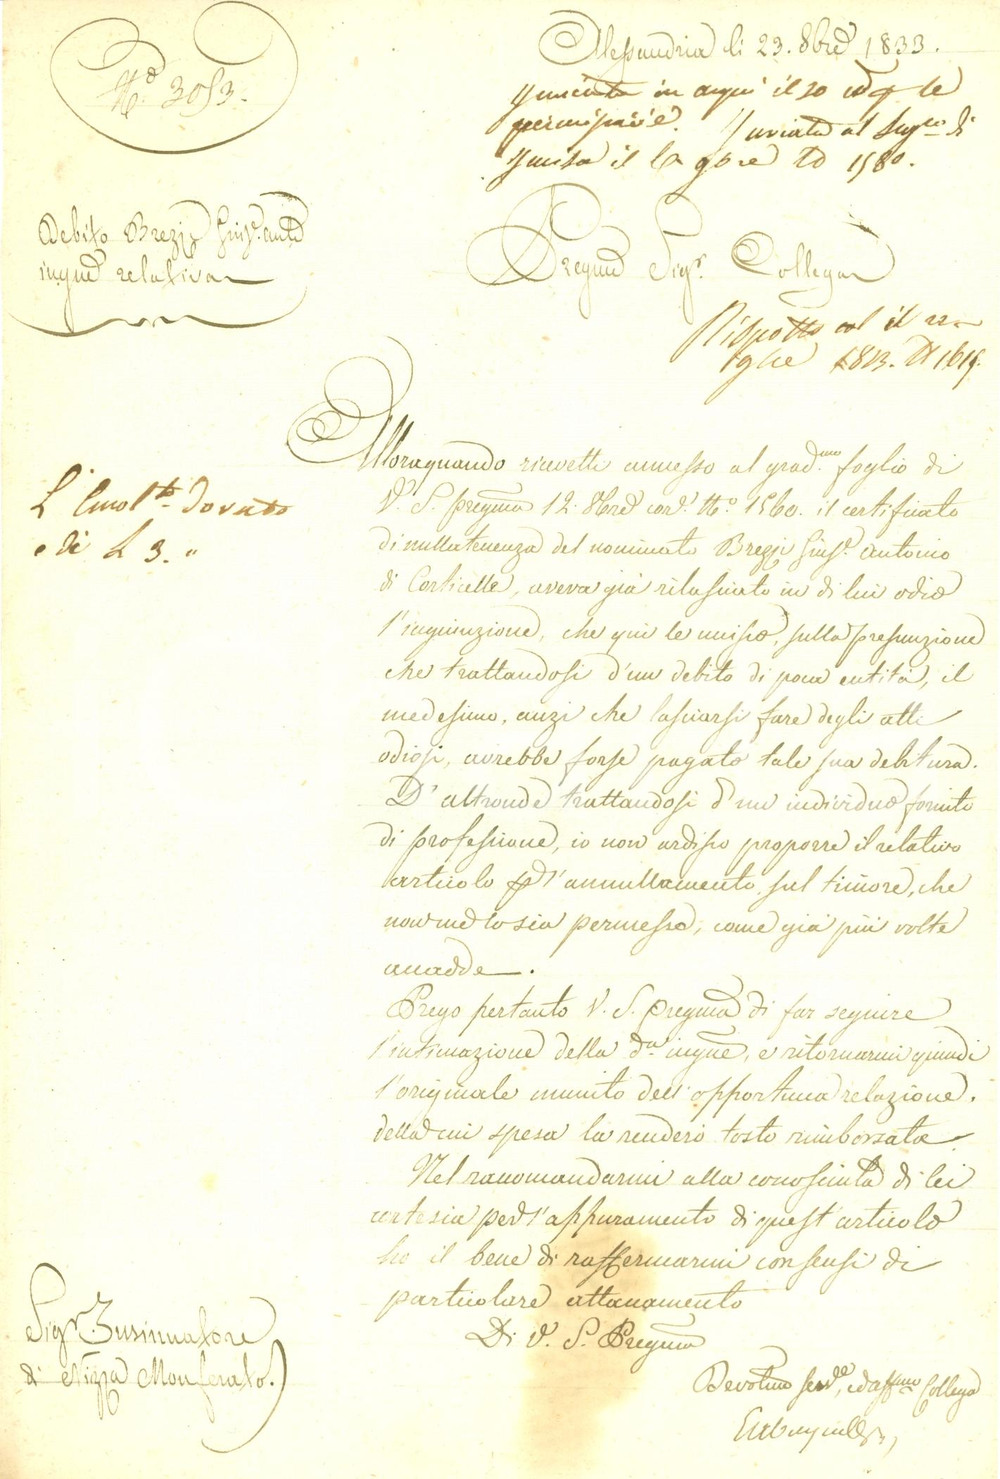 N.º 3053.
Alessandria li 23. 8bre 1833.
in il 20
al di
il 9bre 1580.
Debito Brezzi Gius.e Ant.o
ingne relativa
Pregmo Sig.r Collega
Risposto col il 22
9bre 1833. N 1619.
Alloraquando ricevetti annesso al grad.mo foglio di
V. S. Pregma 12. 8bre cor.e N.º 1560. il certificato
di nullatenenza del nominato Brezzi Gius.e Antonio
di Corticelle, aveva già rilasciato in di lui odio
l'ingiunzione, che qui le unisco, sulla presunzione
che trattandosi d'un debito di poca entità, il
medesimo, anzi che lasciarsi fare degli atti
odiosi, avrebbe forse pagato tale sua debitura.
D'altronde trattandosi d'un individuo fornito
di professione, io non ardisco proporre il relativo
articolo per l'annullamento, sul timore, che
non me lo sia permesso, come già più volte
accadde.
Prego pertanto V. S. Pregma di far seguire
l'intimazione della d.ta ingne, e ritornarmi quindi
l'originale munito dell'opportuna relazione.
della cui spesa la renderò tosto rimborsata.
Nel raccomandarmi alla conosciuta di lei
cortesia per l'appuramento di quest'articolo
ho il bene di raffermarmi con sensi di
particolare attaccamento
Di V. S. Pregma
L'Emol.to dovuto
è di L 3. "
Sig.r Insinuatore
di Nizza Monferrato.
Devotmo ser.re, ed aff.mo Collega